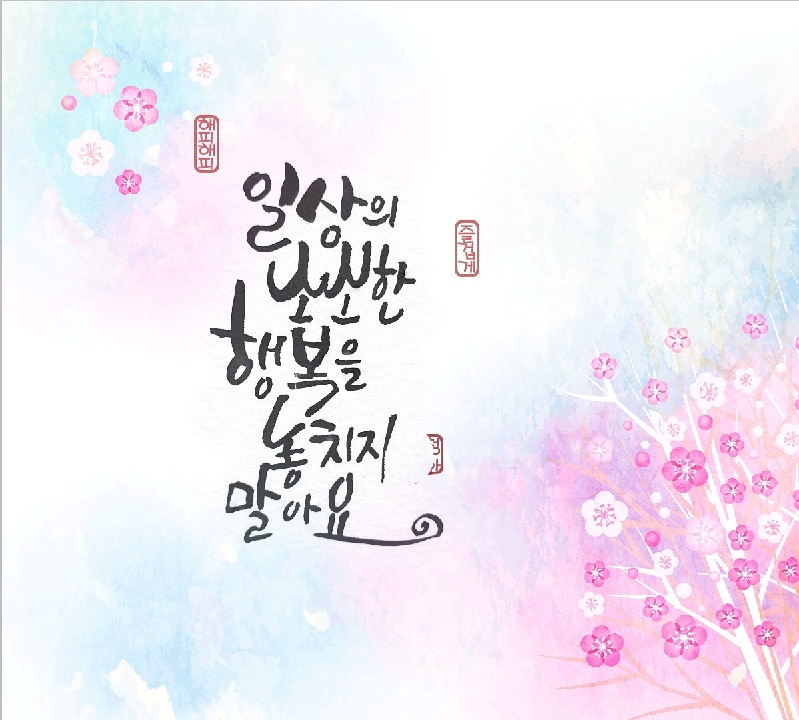 해피해피
일상의
소소한
행복을
놓치지
말아요
즐겁게